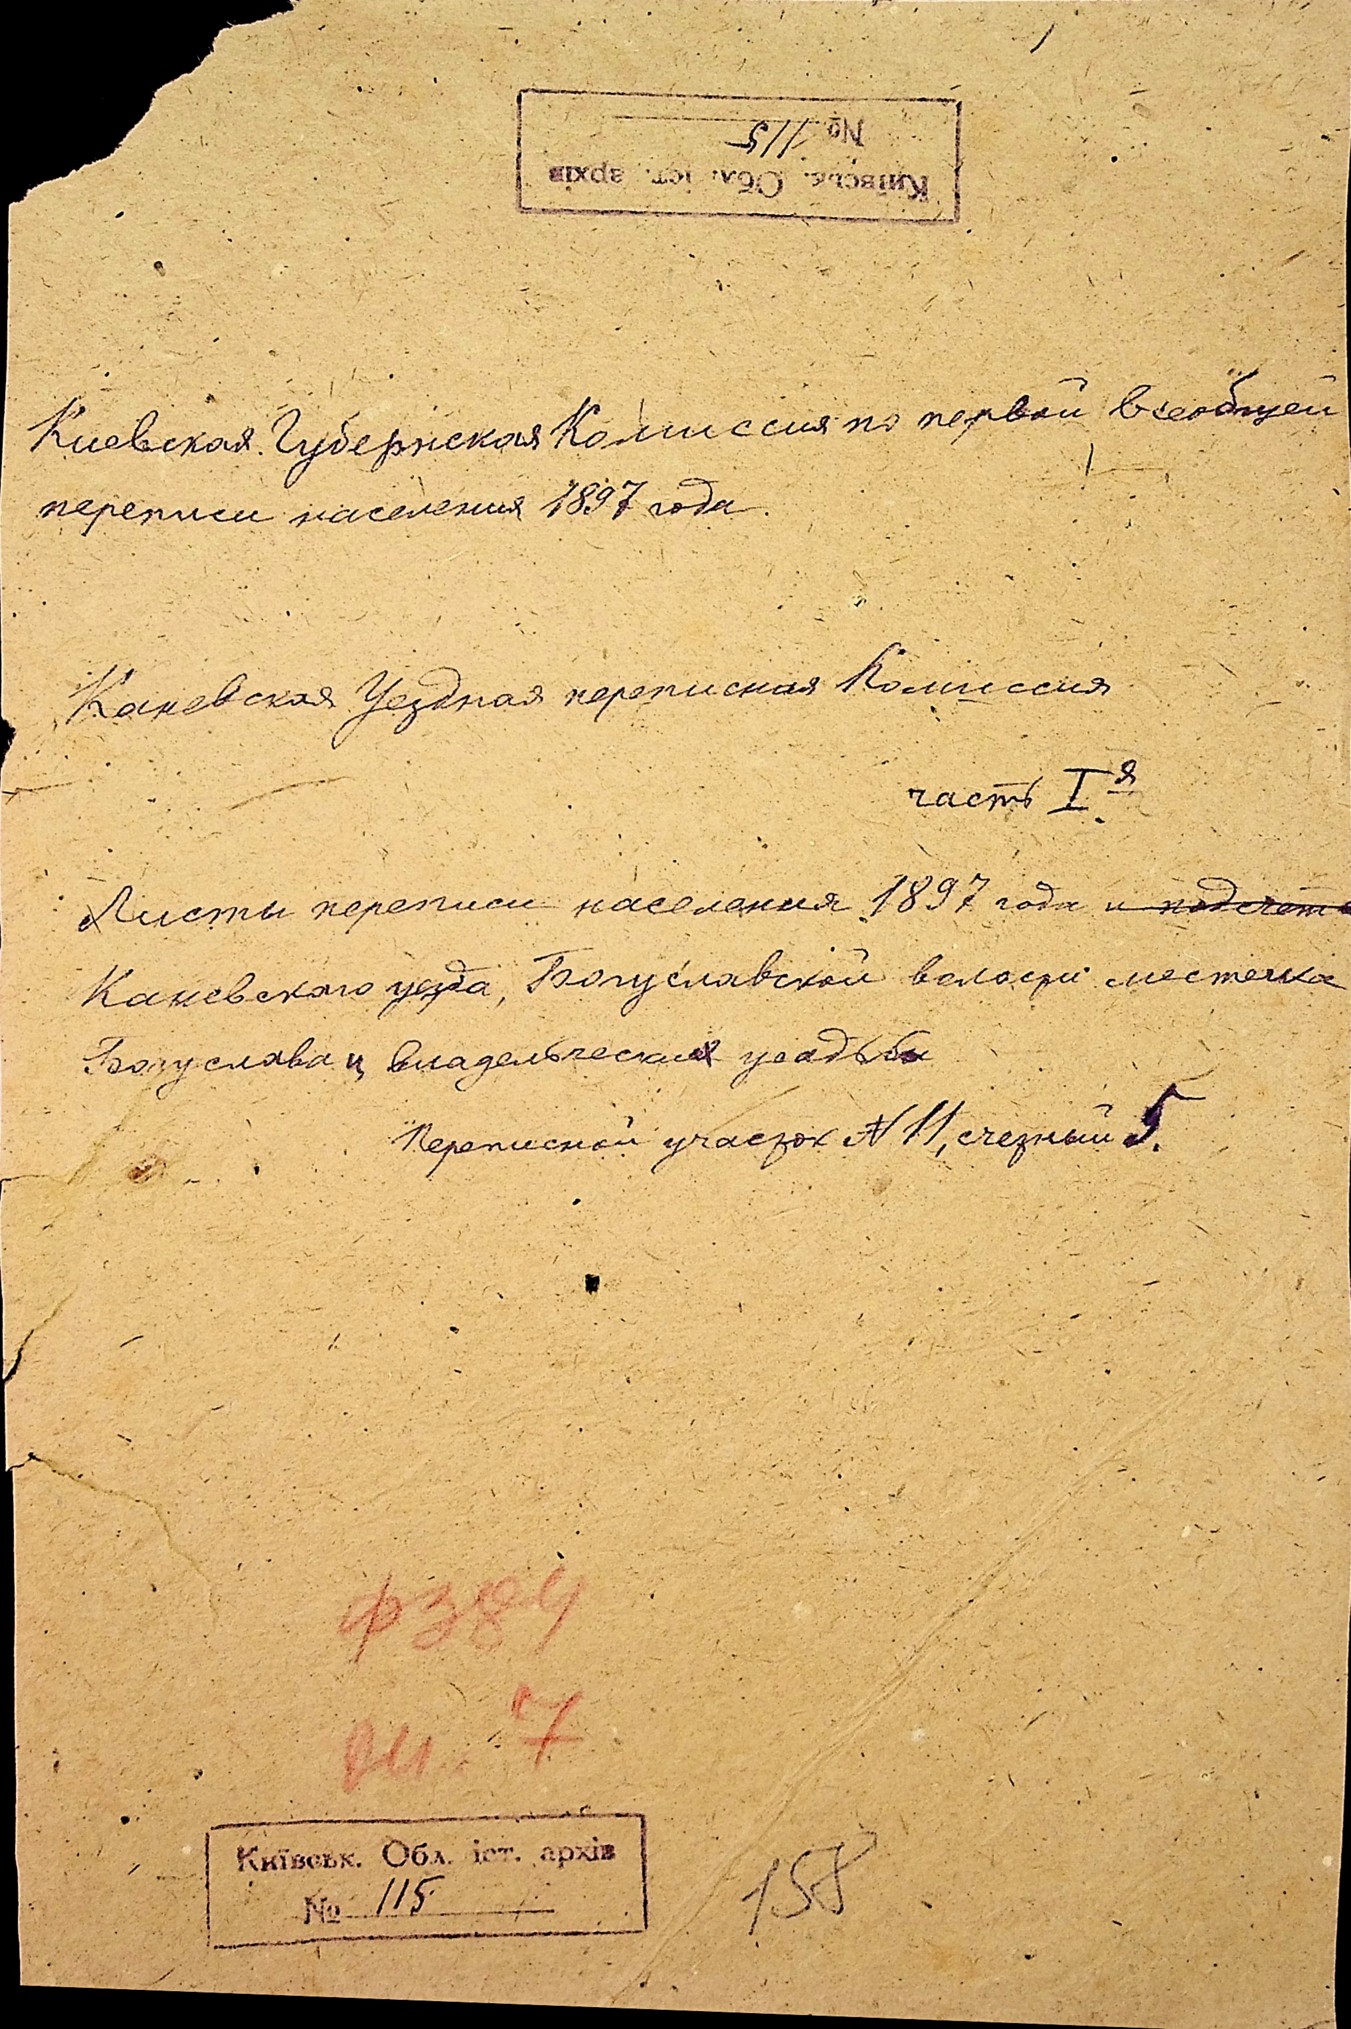 Київськ. Обл. іст. архів
№ 115
Киевская Губернская Комиссия по первой всеобщей
переписи населения 1897 года.
Каневская Уездная переписная Комиссия
часть I я
Листы переписи населения 1897 года и подсчет
Каневского уезда, Богуславской волости местечка
Богуслава и владельческия усадьбы
Переписной участок № 11, счетный 5.
ф 384
оп. 7
Київськ. Обл. іст. архів
№ 115
158